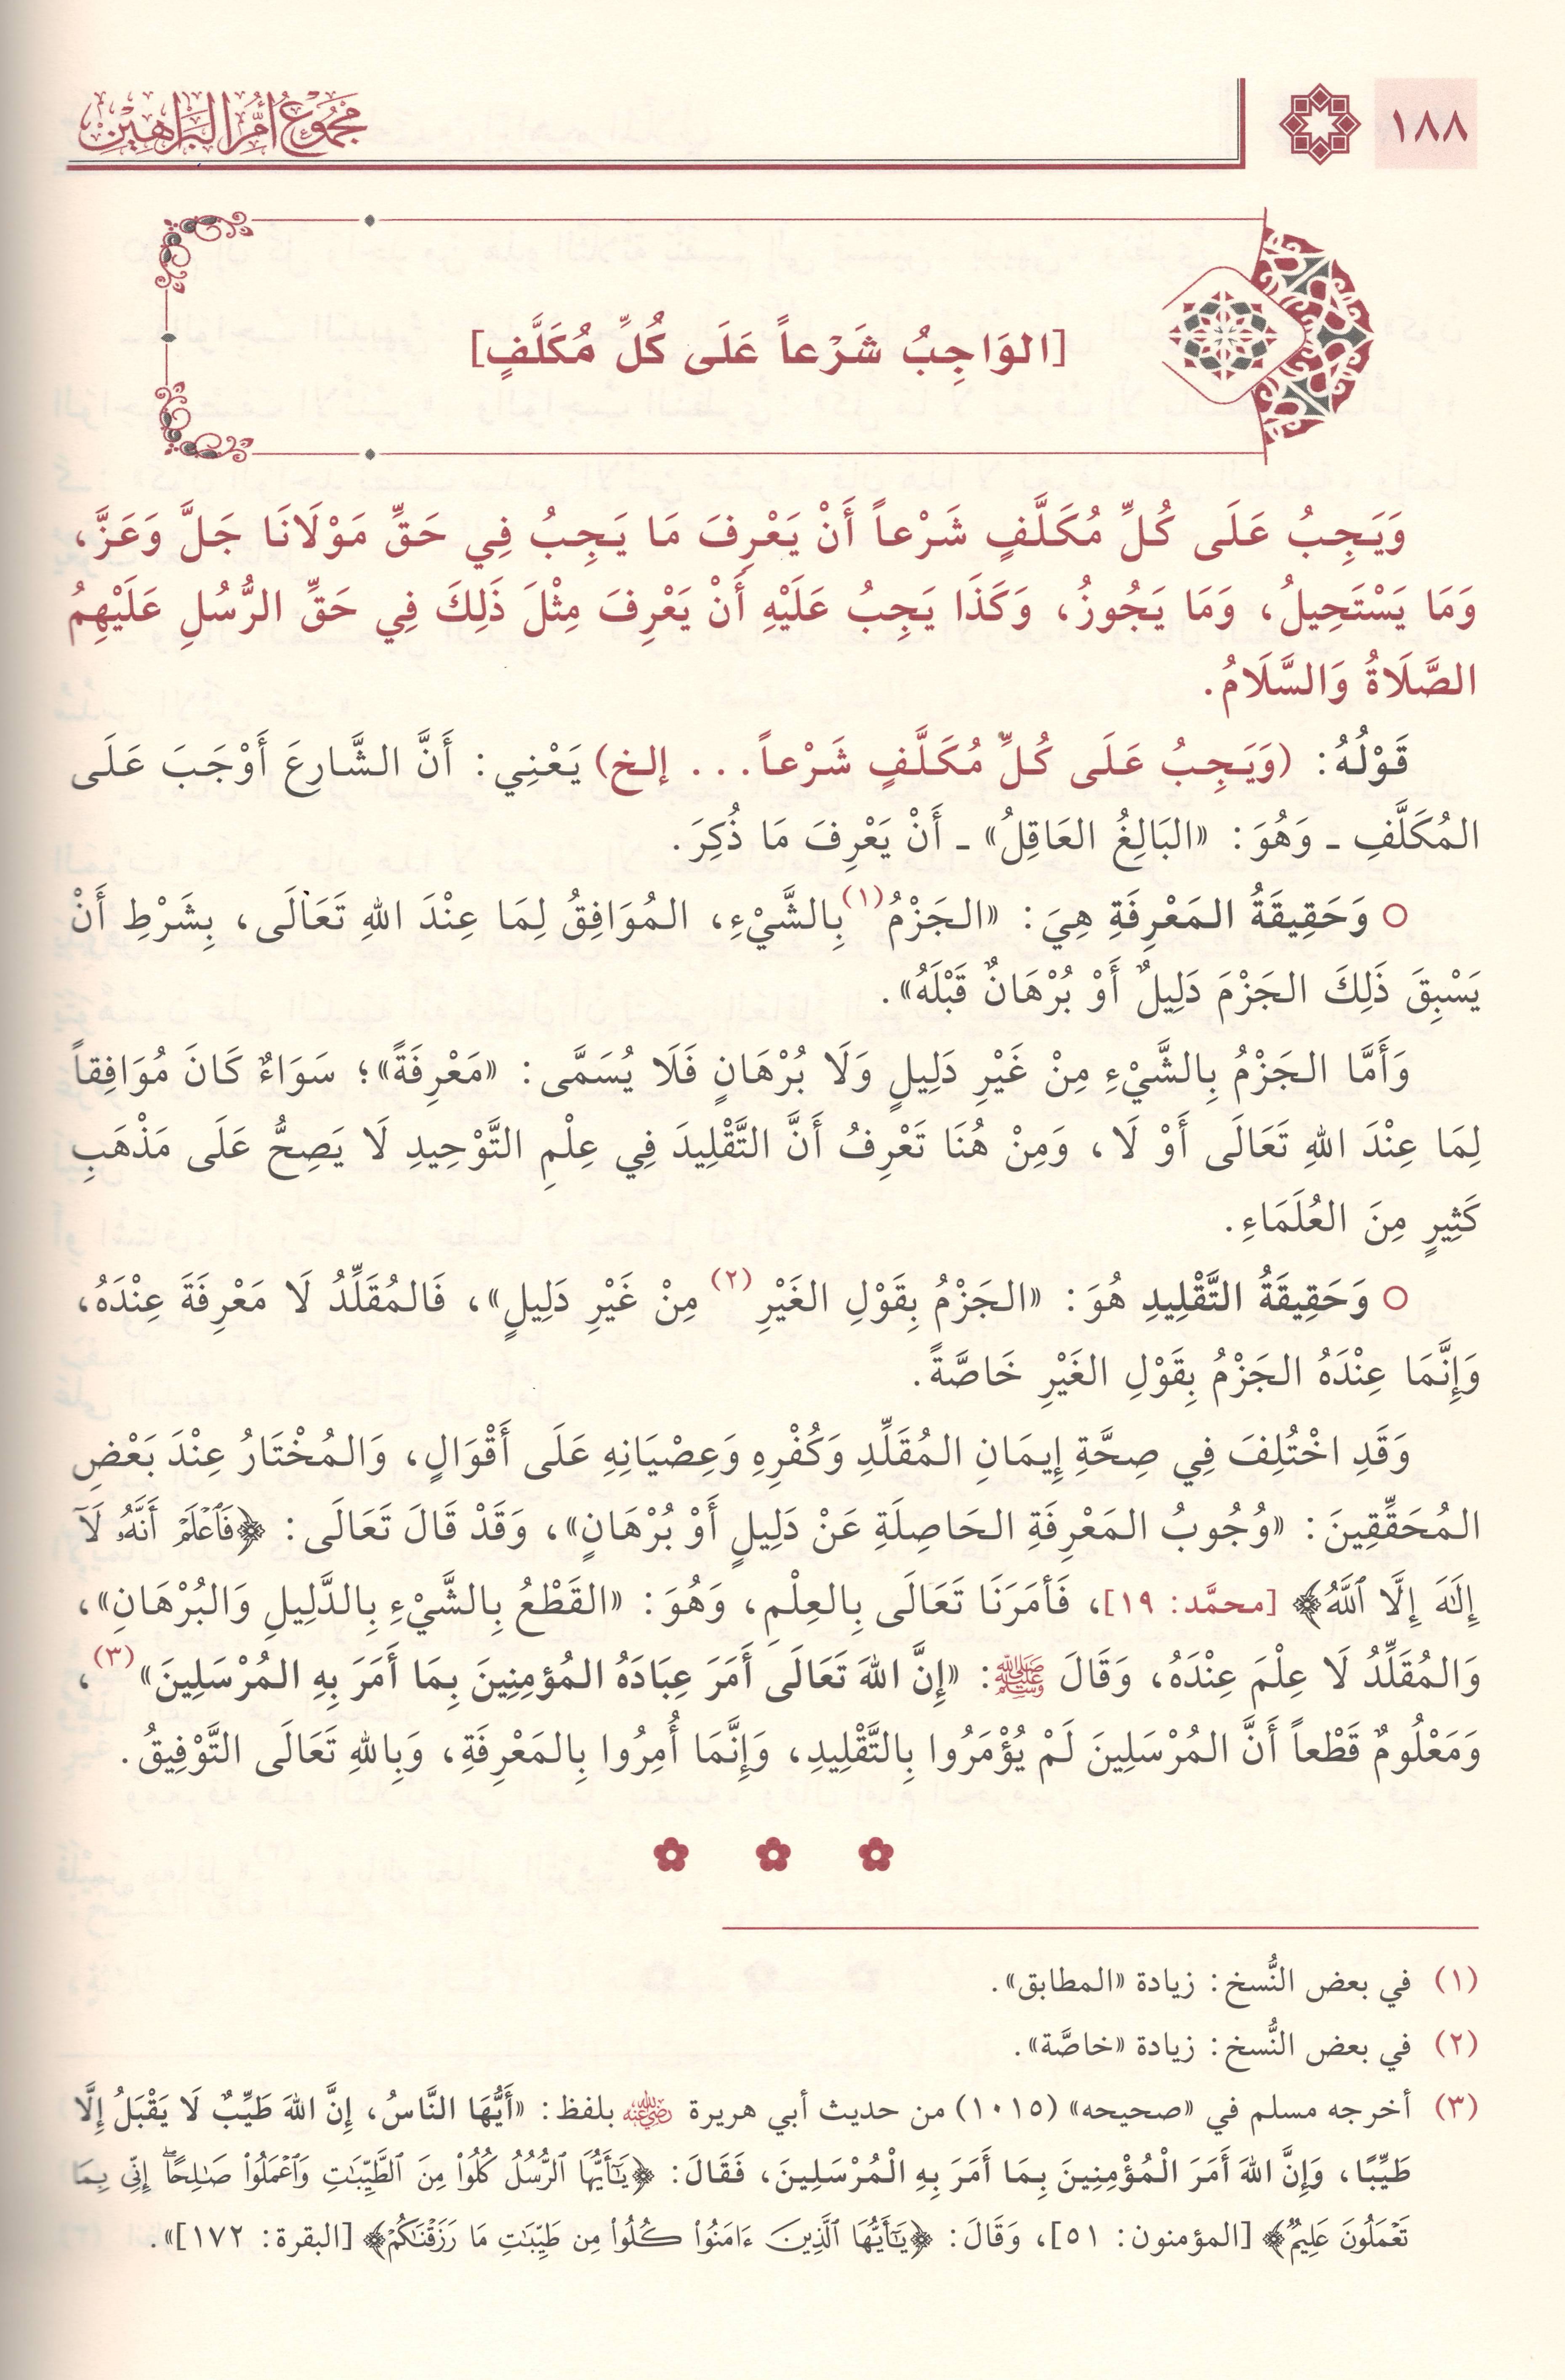 ١٨٨
مجموع أم البراهين
[الوَاجِبُ شَرْعاً عَلَى كُلِّ مُكَلَّفٍ]
وَيَجِبُ عَلَى كُلِّ مُكَلَّفٍ شَرْعاً أَنْ يَعْرِفَ مَا يَجِبُ فِي حَقِّ مَوْلَانَا جَلَّ وَعَزَّ،
وَمَا يَسْتَحِيلُ، وَمَا يَجُوزُ، وَكَذَا يَجِبُ عَلَيْهِ أَنْ يَعْرِفَ مِثْلَ ذَلِكَ فِي حَقِّ الرُّسُلِ عَلَيْهِمُ
الصَّلَاةُ وَالسَّلَامُ.
قَوْلُهُ: (وَيَجِبُ عَلَى كُلِّ مُكَلَّفٍ شَرْعاً... إلخ) يَعْنِي: أَنَّ الشَّارِعَ أَوْجَبَ عَلَى
المُكَلَّفِ ـ وَهُوَ: «البَالِغُ العَاقِلُ» ـ أَنْ يَعْرِفَ مَا ذُكِرَ.
○ وَحَقِيقَةُ المَعْرِفَةِ هِيَ: «الجَزْمُ(١) بِالشَّيْءِ، المُوَافِقُ لِمَا عِنْدَ اللهِ تَعَالَى، بِشَرْطِ أَنْ
يَسْبِقَ ذَلِكَ الجَزْمَ دَلِيلٌ أَوْ بُرْهَانٌ قَبْلَهُ».
وَأَمَّا الجَزْمُ بِالشَّيْءِ مِنْ غَيْرِ دَلِيلٍ وَلَا بُرْهَانٍ فَلَا يُسَمَّى: «مَعْرِفَةً»؛ سَوَاءٌ كَانَ مُوَافِقاً
لِمَا عِنْدَ اللهِ تَعَالَى أَوْ لَا، وَمِنْ هُنَا تَعْرِفُ أَنَّ التَّقْلِيدَ فِي عِلْمِ التَّوْحِيدِ لَا يَصِحُّ عَلَى مَذْهَبِ
كَثِيرٍ مِنَ العُلَمَاءِ.
○ وَحَقِيقَةُ التَّقْلِيدِ هُوَ: «الجَزْمُ بِقَوْلِ الغَيْرِ(٢) مِنْ غَيْرِ دَلِيلٍ»، فَالمُقَلِّدُ لَا مَعْرِفَةَ عِنْدَهُ،
وَإِنَّمَا عِنْدَهُ الجَزْمُ بِقَوْلِ الغَيْرِ خَاصَّةً.
وَقَدِ اخْتُلِفَ فِي صِحَّةِ إِيمَانِ المُقَلِّدِ وَكُفْرِهِ وَعِصْيَانِهِ عَلَى أَقْوَالٍ، وَالمُخْتَارُ عِنْدَ بَعْضِ
المُحَقِّقِينَ: «وُجُوبُ المَعْرِفَةِ الحَاصِلَةِ عَنْ دَلِيلٍ أَوْ بُرْهَانٍ»، وَقَدْ قَالَ تَعَالَى: ﴿فَٱعْلَمْ أَنَّهُۥ لَآ
إِلَٰهَ إِلَّا ٱللَّهُ﴾ [محمَّد: ١٩]، فَأَمَرَنَا تَعَالَى بِالعِلْمِ، وَهُوَ: «القَطْعُ بِالشَّيْءِ بِالدَّلِيلِ وَالبُرْهَانِ»،
وَالمُقَلِّدُ لَا عِلْمَ عِنْدَهُ، وَقَالَ ﷺ: «إِنَّ اللهَ تَعَالَى أَمَرَ عِبَادَهُ المُؤمِنِينَ بِمَا أَمَرَ بِهِ المُرْسَلِينَ»(٣)،
وَمَعْلُومٌ قَطْعاً أَنَّ المُرْسَلِينَ لَمْ يُؤْمَرُوا بِالتَّقْلِيدِ، وَإِنَّمَا أُمِرُوا بِالمَعْرِفَةِ، وَبِاللهِ تَعَالَى التَّوْفِيقُ.
(١) في بعض النُّسخ: زيادة «المطابق».
(٢) في بعض النُّسخ: زيادة «خاصَّة».
(٣) أخرجه مسلم في «صحيحه» (١٠١٥) من حديث أبي هريرة رضي الله عنه بلفظ: «أَيُّهَا النَّاسُ، إِنَّ اللهَ طَيِّبٌ لَا يَقْبَلُ إِلَّا
طَيِّبًا، وَإِنَّ اللهَ أَمَرَ الْمُؤْمِنِينَ بِمَا أَمَرَ بِهِ الْمُرْسَلِينَ، فَقَالَ: ﴿يَٰٓأَيُّهَا ٱلرُّسُلُ كُلُوا۟ مِنَ ٱلطَّيِّبَٰتِ وَٱعْمَلُوا۟ صَٰلِحًا ۖ إِنِّى بِمَا
تَعْمَلُونَ عَلِيمٌ﴾ [المؤمنون: ٥١]، وَقَالَ: ﴿يَٰٓأَيُّهَا ٱلَّذِينَ ءَامَنُوا۟ كُلُوا۟ مِن طَيِّبَٰتِ مَا رَزَقْنَٰكُمْ﴾ [البقرة: ١٧٢]».